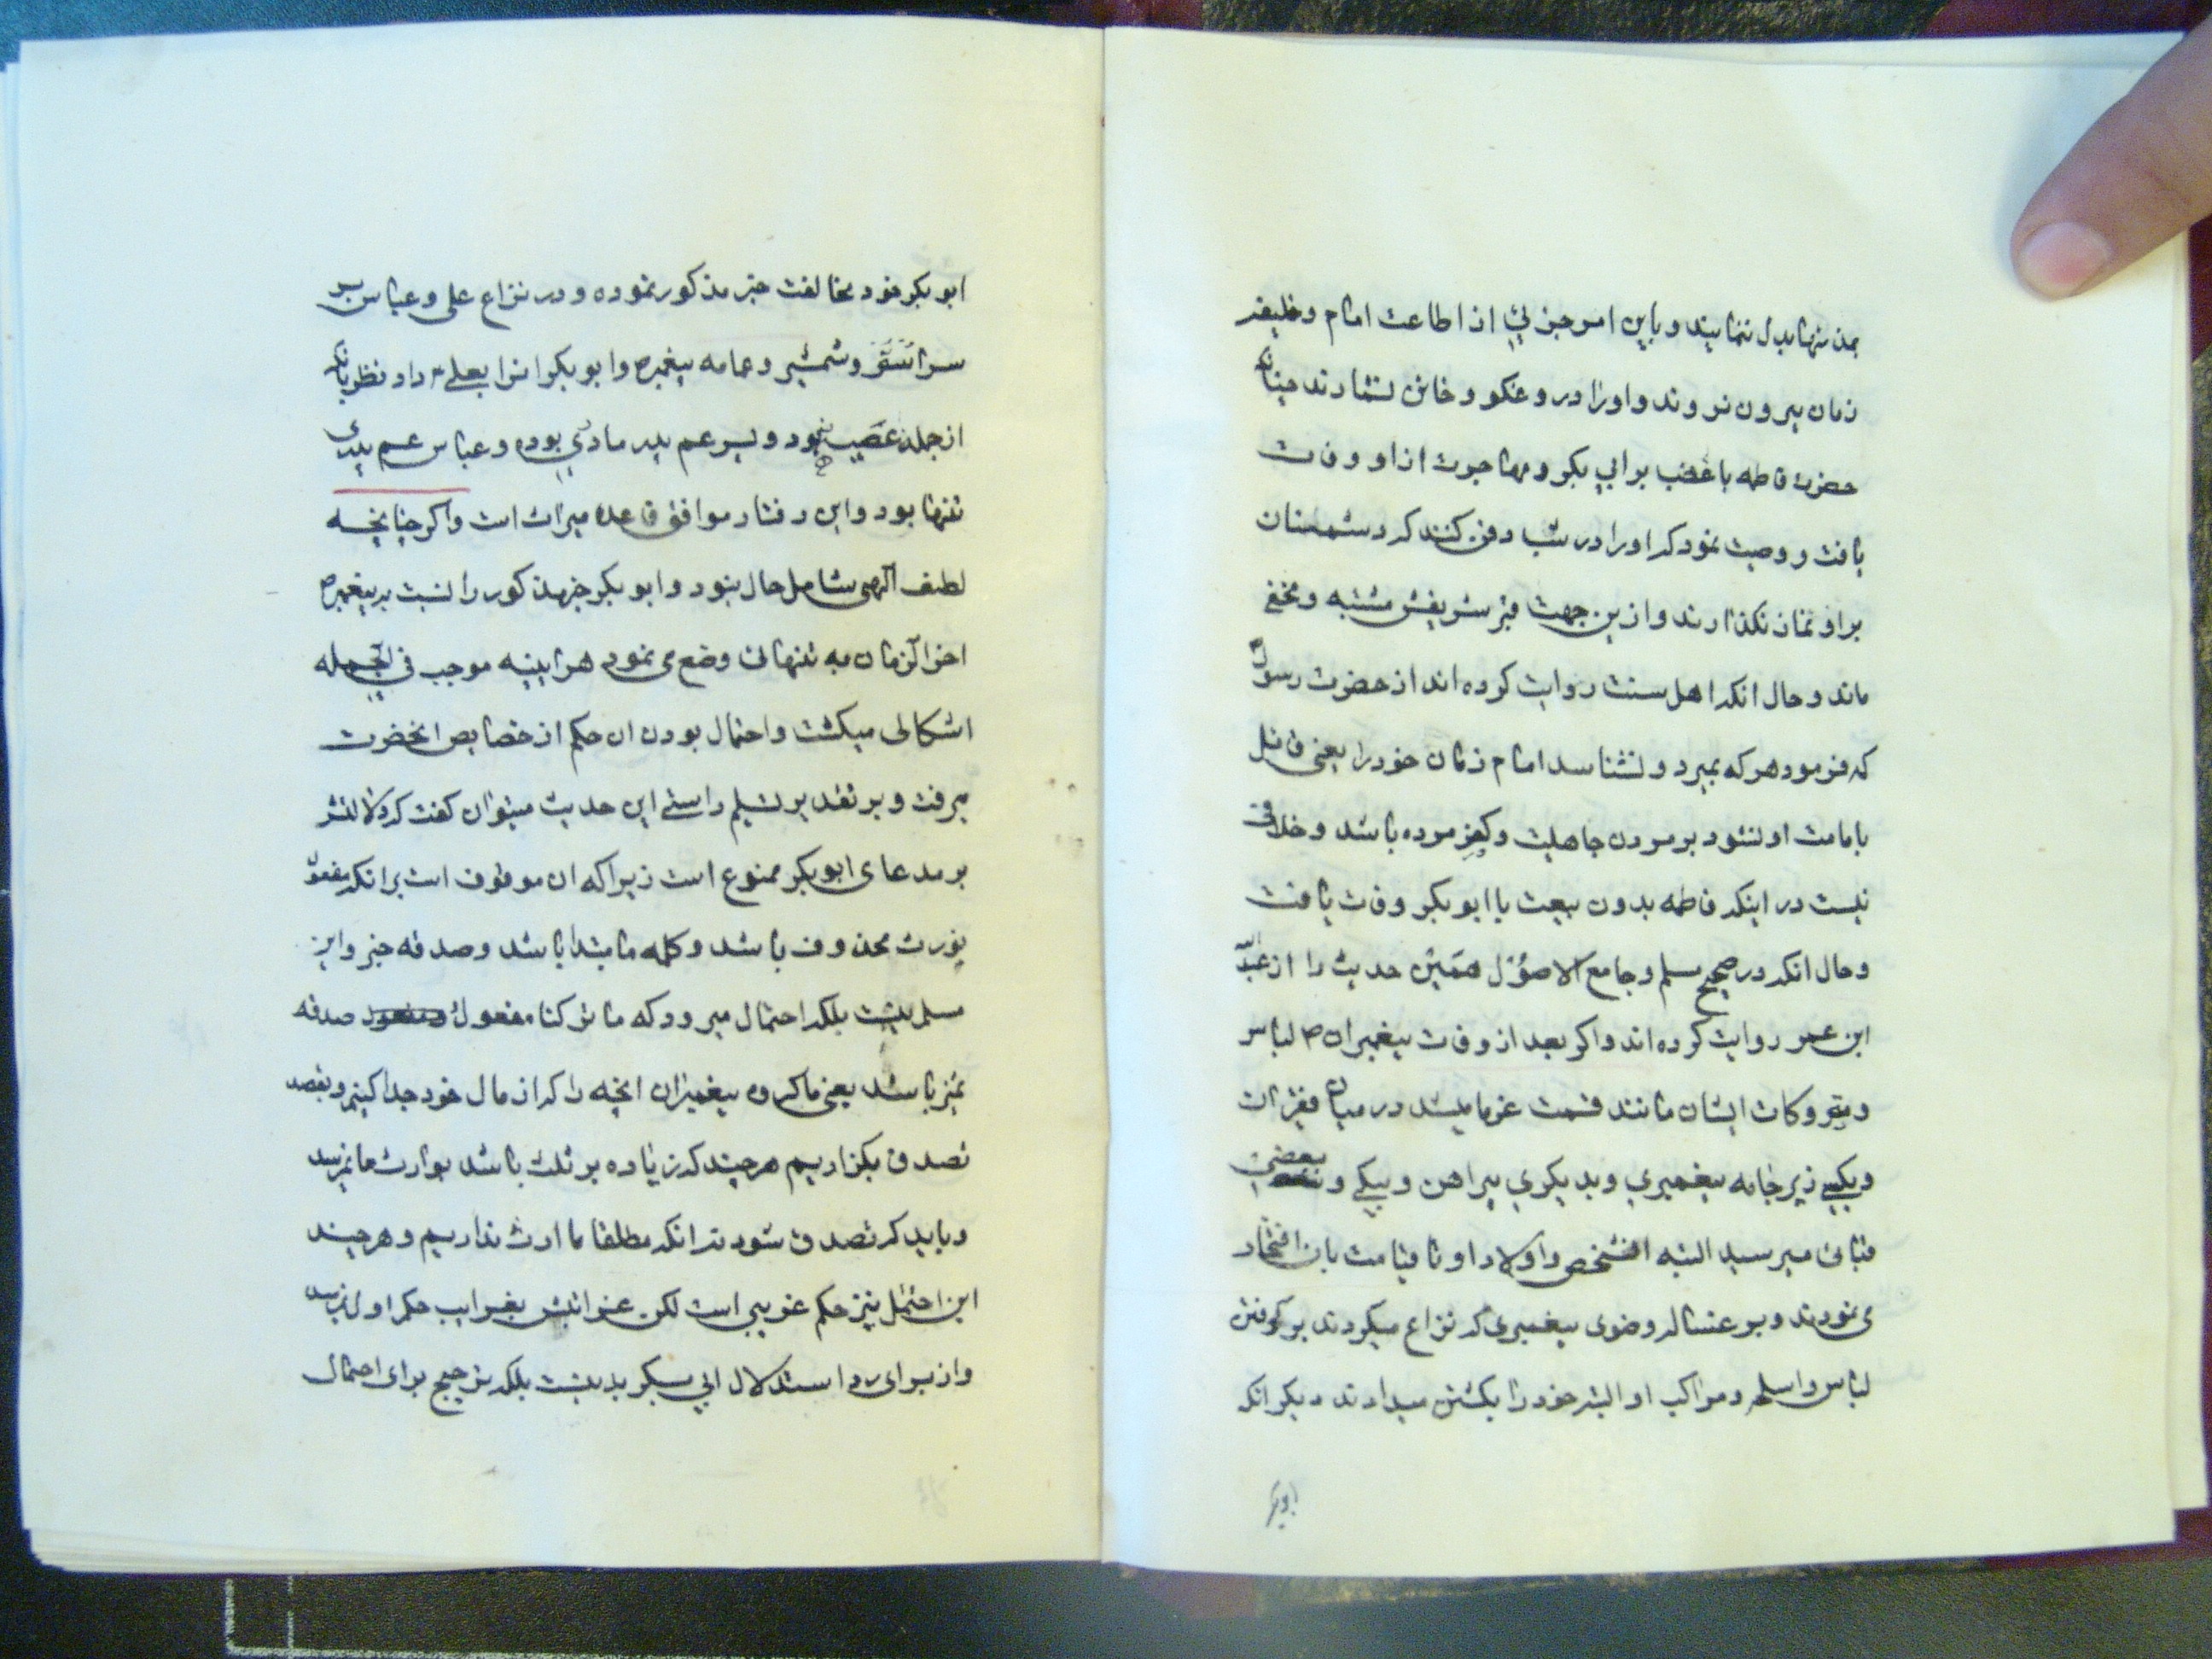 بمذ تنهابدل ننمایند و باین امر جزئی از اطاعت امام و خلیفه
زمان بیرون نروند و اورا دروغکو و خاش نشمارند چنانکه
حضرت فاطمه با غضب بر ابی بکر و مهاجرت از او وفات
یافت و وصیت نمود که اورا در شب دفن کنند که دشمنان
بر او نماز نکذارند و ازین جهت قبر شریفش مشتبه و مخفی
ماند و حال انکه اهل سنت روایت کرده اند از حضرت رسول ص
که فرمود هر که بمیرد و نشناسد امام زمان خود را یعنی قائل
بامامت او نشود بر مردن جاهلیت و کفر مرده باشد و خلافی
نیست در اینکه فاطمه بدون بیعت با ابوبکر وفات یافت
و حال انکه در صحیح مسلم و جامع الاصول همین حدیث را از عبدالله
ابن عمر روایت کرده اند و اکر بعد از وفات پیغمبران ص لباس
و متروکات ایشان مانند قسمت غرما میشد در میان فقرا ات
و بیکی زیر جامه پیغمبری و بدیکری پیراهن و بیکی و بعضی
قبائی میرسید البته انشخص و اولاد او تا قیامت بان افتخار
می نمودند و بر غساله وضوی پیغمبری که نزاع میکردند بر کرفتن
لباس و اسلحه و مراکب او البته خود را بکشتن میدادند دیکر انکه
ابوبکر
ابوبکر خود مخالفت خبر مذکور نموده و در نزاع علی و عباس بر
سر استر و شمشیر و عمامه پیغمبر ص و ابوبکر انرا بعلی م داد نظر بانکه
از جمله عصبه نبود و پسر عم پدر مادری بوده و عباس عم پدری
تنها بود و این رفتار موافق قاعده میراث است و اکر چنانچه
لطف الهی شامل حال نبود و ابوبکر خبر مذکور را نسبت به پیغمبر ص
اخر الزمان به تنهائی وضع می نمود هر اینه موجب فی الجمله
اشکالی میکشت و احتمال بودن ان حکم از خصایص انحضرت
میرفت و بر تقدیر تسلیم راستی این حدیث میتوان کفت که دلالتش
بر مدعای ابوبکر ممنوع است زیرا که ان موقوف است بر انکه مفعول
نورث محذوف باشد و کلمه ما مبتدا باشد و صدقه خبر و این
مسلم نیست بلکه احتمال میرود که ما ترکنا مفعول و صدقه
تمیز باشد یعنی ما کروه پیغمبران انچه را که از مال خود جدا کنیم و بقصد
تصدق بکزاریم هر چند که زیاده بر ثلث باشد بوارث ما نمیرسد
و باید که تصدق شود نه انکه مطلقا ما ارث نداریم و هر چند
این احتمال نیز حکم غریبی است لکن غرابتش بغرایب حکم اول نمیرسد
و از برای رد استدلال ابی بکر بد نیست بلکه ترجیح برای احتمال